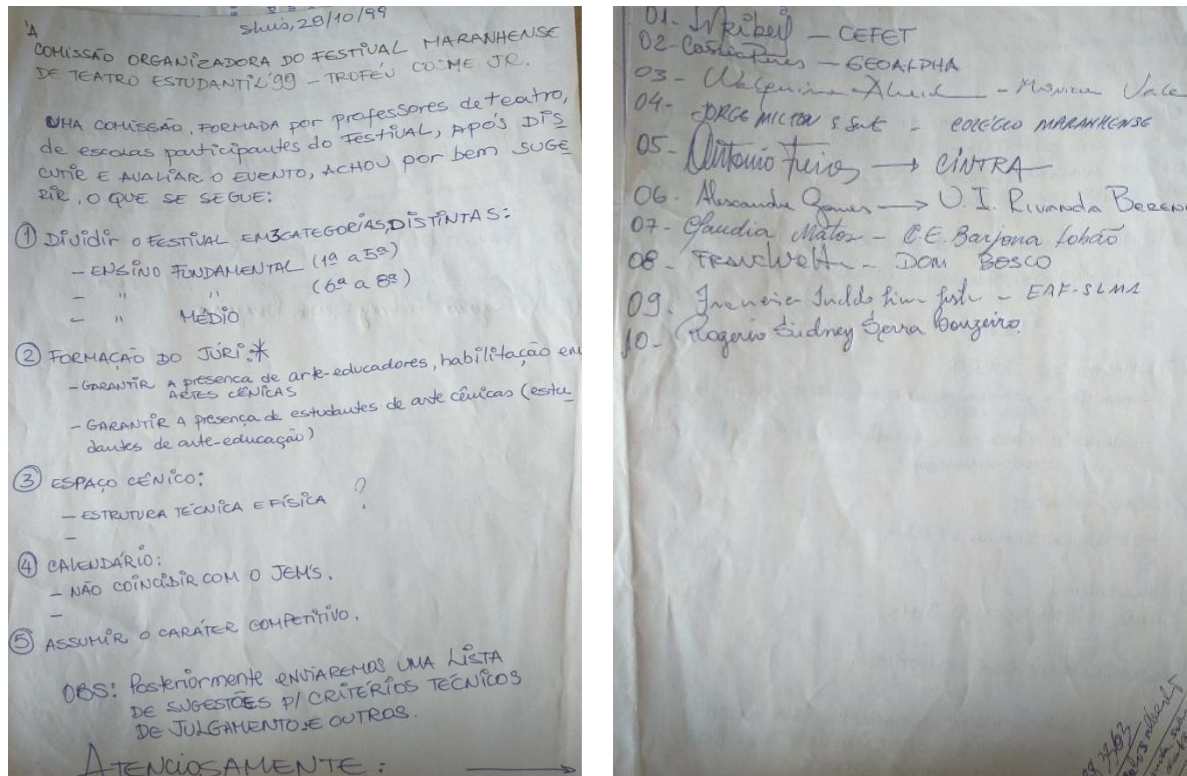 Sluís, 29/10/99
À
COMISSÃO ORGANIZADORA DO FESTIVAL MARANHENSE
DE TEATRO ESTUDANTIL'99 – TROFÉU COSME JR.
UMA COMISSÃO, FORMADA por professores de teatro,
de escolas participantes do FESTIVAL, APÓS DIS
CUTIR E AVALIAR O EVENTO, ACHOU por bem SUGE
RIR, O QUE SE SEGUE:
① Dividir o FESTIVAL EM 3 CATEGORIAS, DISTINTAS:
– ENSINO FUNDAMENTAL (1ª a 5ª)
– " " (6ª a 8ª)
– " MÉDIO
② FORMAÇÃO DO JÚRI:*
– GARANTIR A presença de arte-educadores, habilitação em
ARTES CÊNICAS
– GARANTIR A presença de estudantes de arte cênicas (estu
dantes de arte-educação)
③ ESPAÇO CÊNICO:
– ESTRUTURA TÉCNICA E FÍSICA ?
–
④ CALENDÁRIO:
– NÃO COINCIDIR COM O JEM'S.
–
⑤ ASSUMIR O CARÁTER COMPETITIVO.
OBS: Posteriormente ENVIAREMOS UMA LISTA
DE SUGESTÕES P/ CRITÉRIOS TÉCNICOS
DE JULGAMENTO E OUTROS.
ATENCIOSAMENTE: →
01- — CEFET
02- — GEOALPHA
03- - Vale
04- JORGE MILTON - COLÉGIO MARANHENSE
05- Antonio → CINTRA
06- Alexandre Gomes → U.I. Rivanda
07- Claudia Matos – C.E. Barjona Lobão
08 - – DOM BOSCO
09. – EAF-SLMA
10- Rogerio Sidney Serra